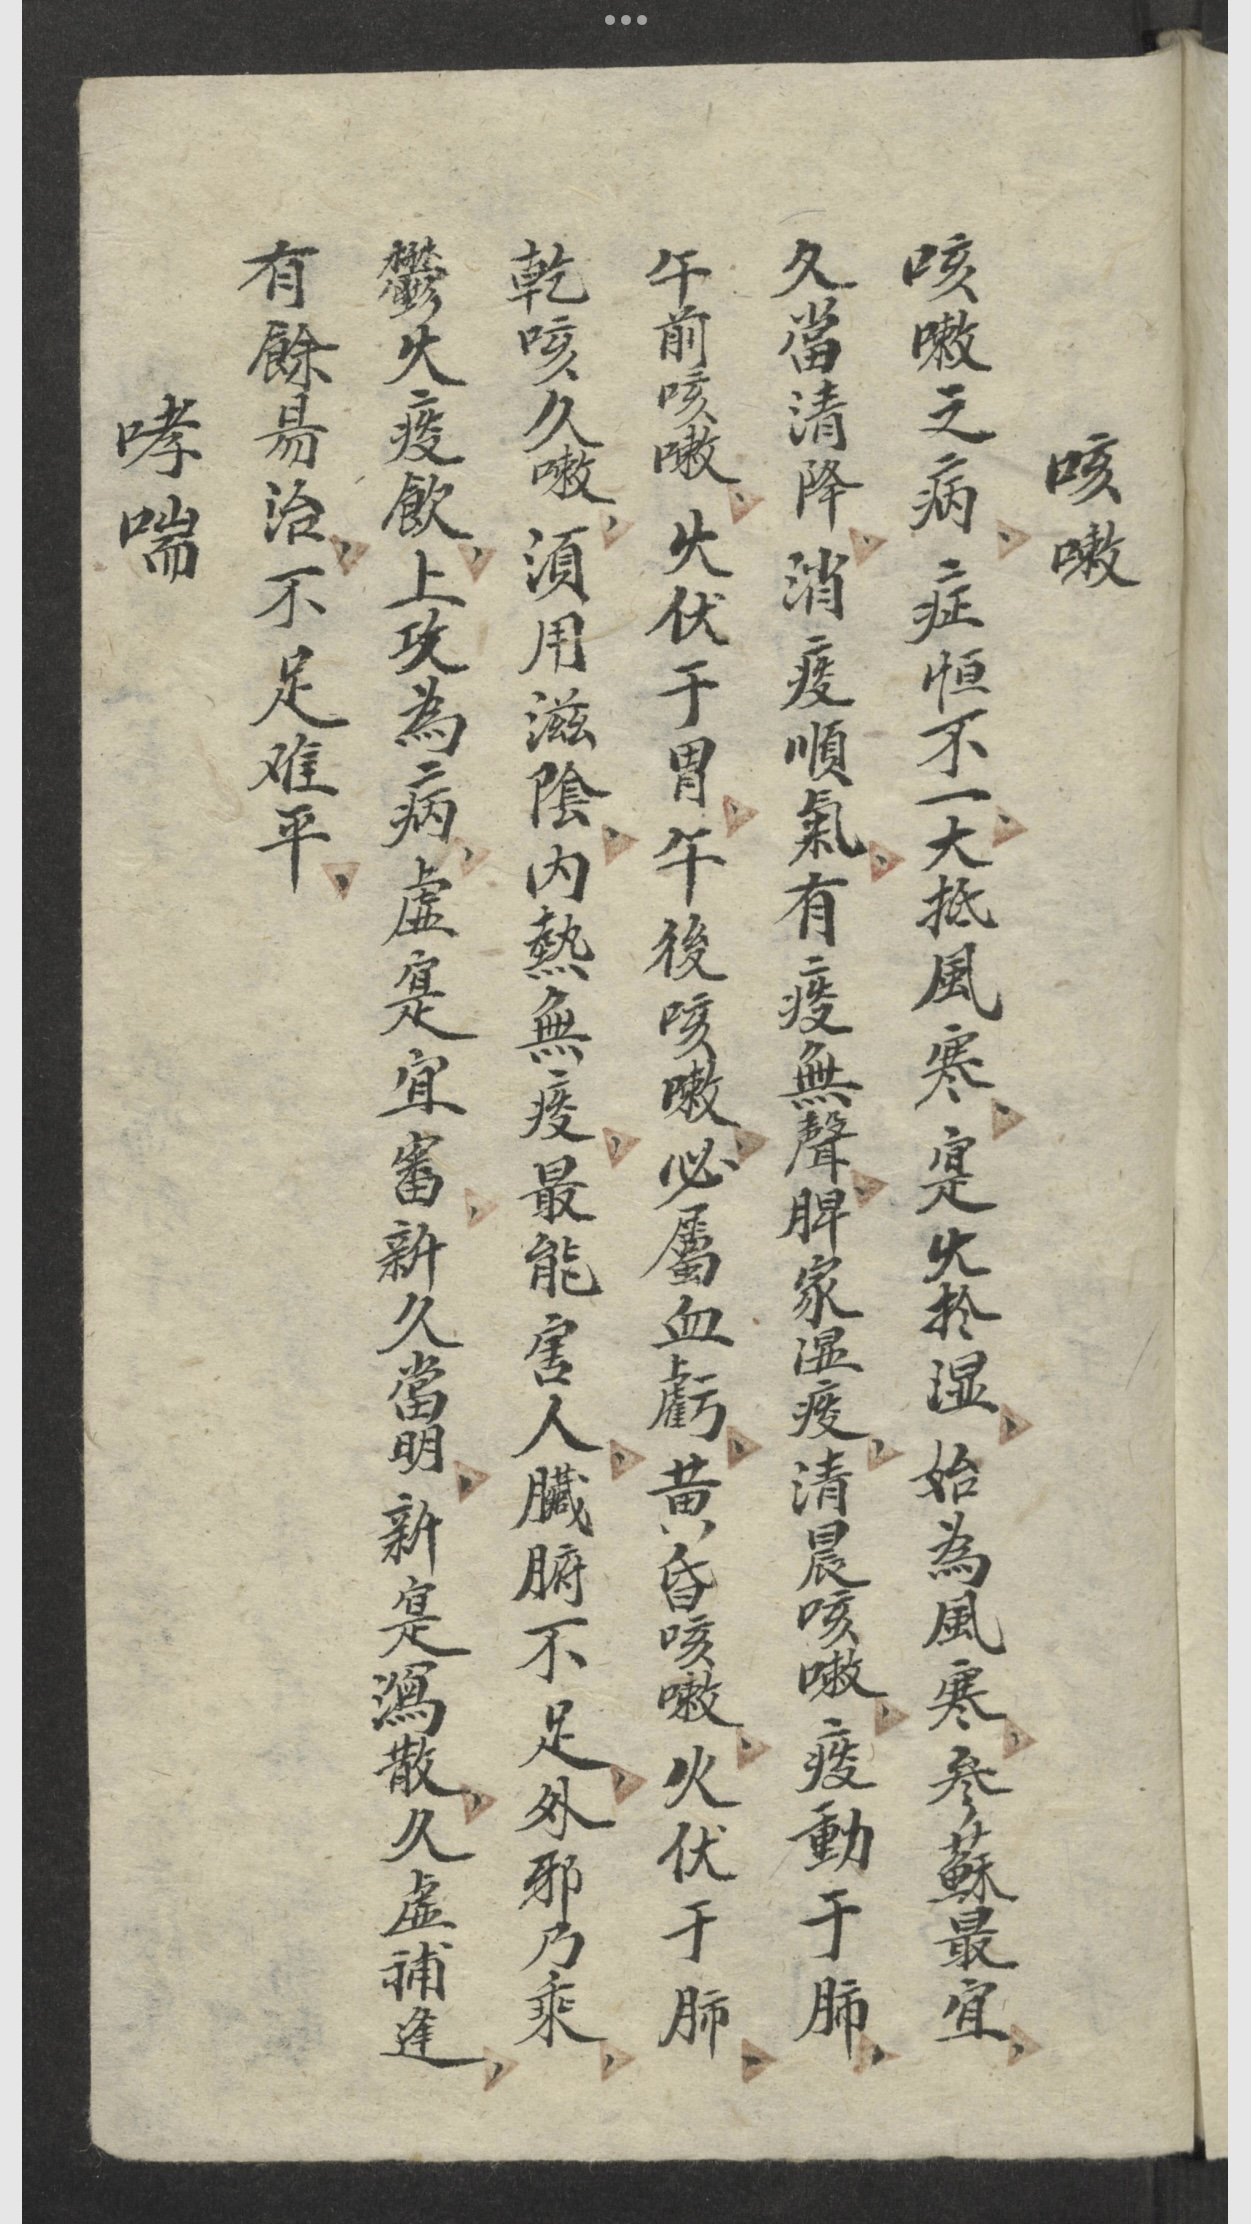 咳嗽
咳嗽之病、症恒不一、大抵風寒、寔火拎湿、始為風寒、参蘇最宜、
久當清降、消痰順氣、有痰無聲、脾家湿痰、清晨咳嗽、痰動于肺、
午前咳嗽、火伏于胃、午後咳嗽、必屬血虧、黄昏咳嗽、火伏于肺、
乾咳久嗽、湏用滋陰、内熱無痰、最能害人、臓腑不足、外邪乃乘、
鬱火痰飲、上攻為病、虛寔宜審、新久當明、新寔瀉散、久虛補逢、
有餘易治、不足难平、
哮喘